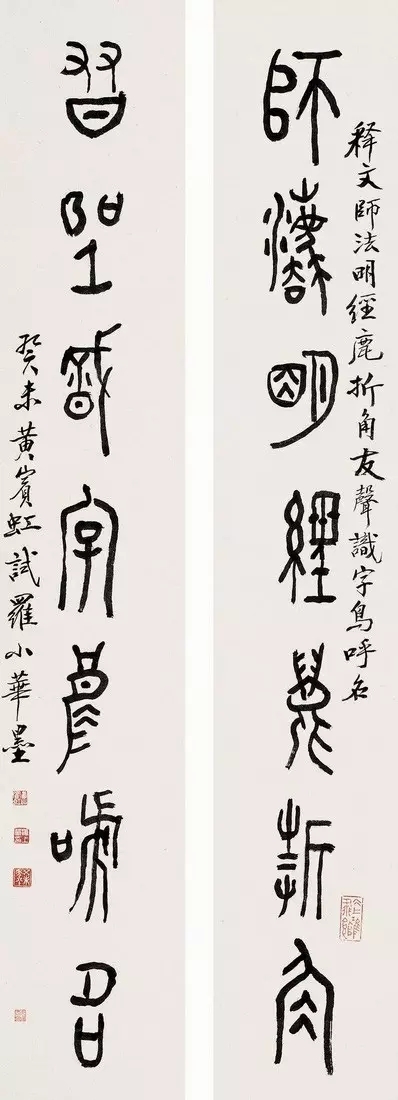 釋文師法明經鹿折角友聲識字鳥呼名
師灋明經鹿折角
友聲識字鳥呼名
癸未黃賓虹試羅小華墨